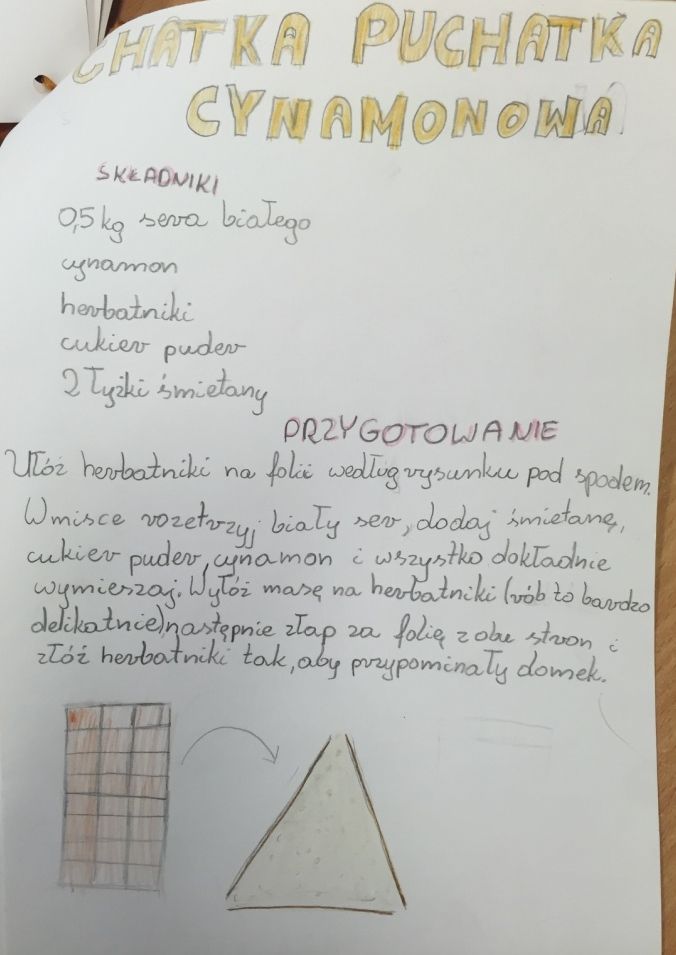 CHATKA PUCHATKA
CYNAMONOWA
SKŁADNIKI
0,5 kg sera białego
cynamon
herbatniki
cukier puder
2 łyżki śmietany
PRZYGOTOWANIE
Ułóż herbatniki na folii według rysunku pod spodem.
W misce rozetrzyj biały ser, dodaj śmietanę,
cukier puder, cynamon i wszystko dokładnie
wymieszaj. Wyłóż masę na herbatniki (rób to bardzo
delikatnie), następnie złap za folię z obu stron i
złóż herbatniki tak, aby przypominały domek.